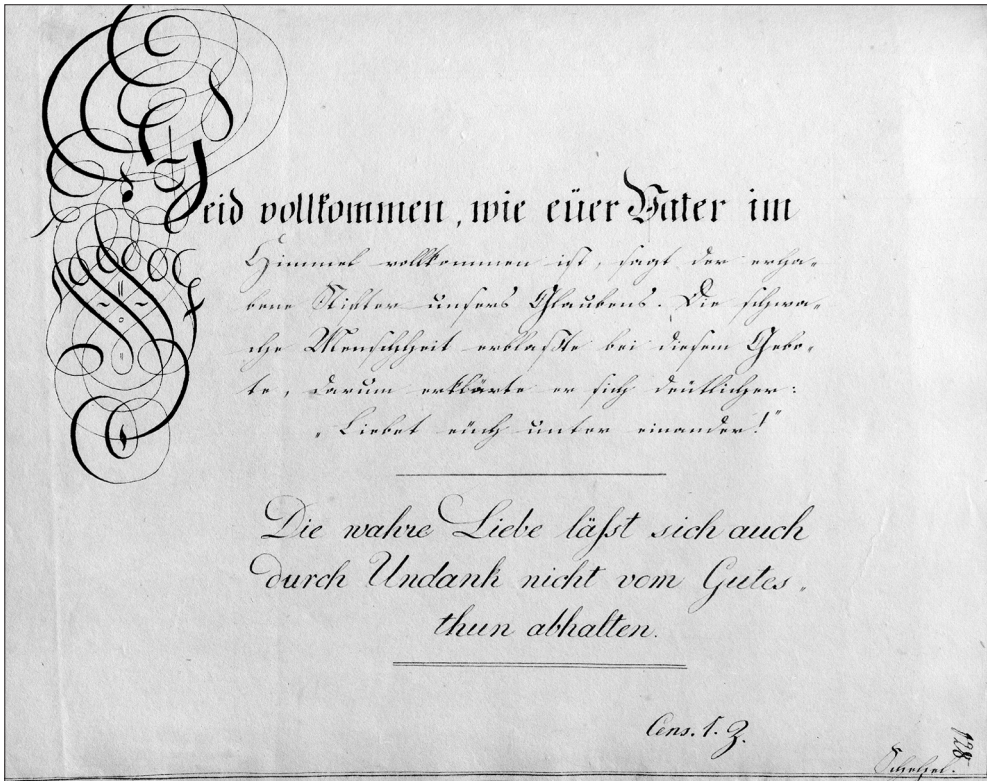 Seid vollkommen, wie eüer Vater im
Himmel vollkommen ist, sagt der erha-
bene Stifter unsers Glaubens. Die schwa-
che Menschheit erblaßte bei diesem Gebo-
te, darum erklärte er sich deütlicher:
„Liebet eüch unter einander!"
Die wahre Liebe läßt sich auch
durch Undank nicht vom Gutes-
thun abhalten.
Cens. 1. Z.
128